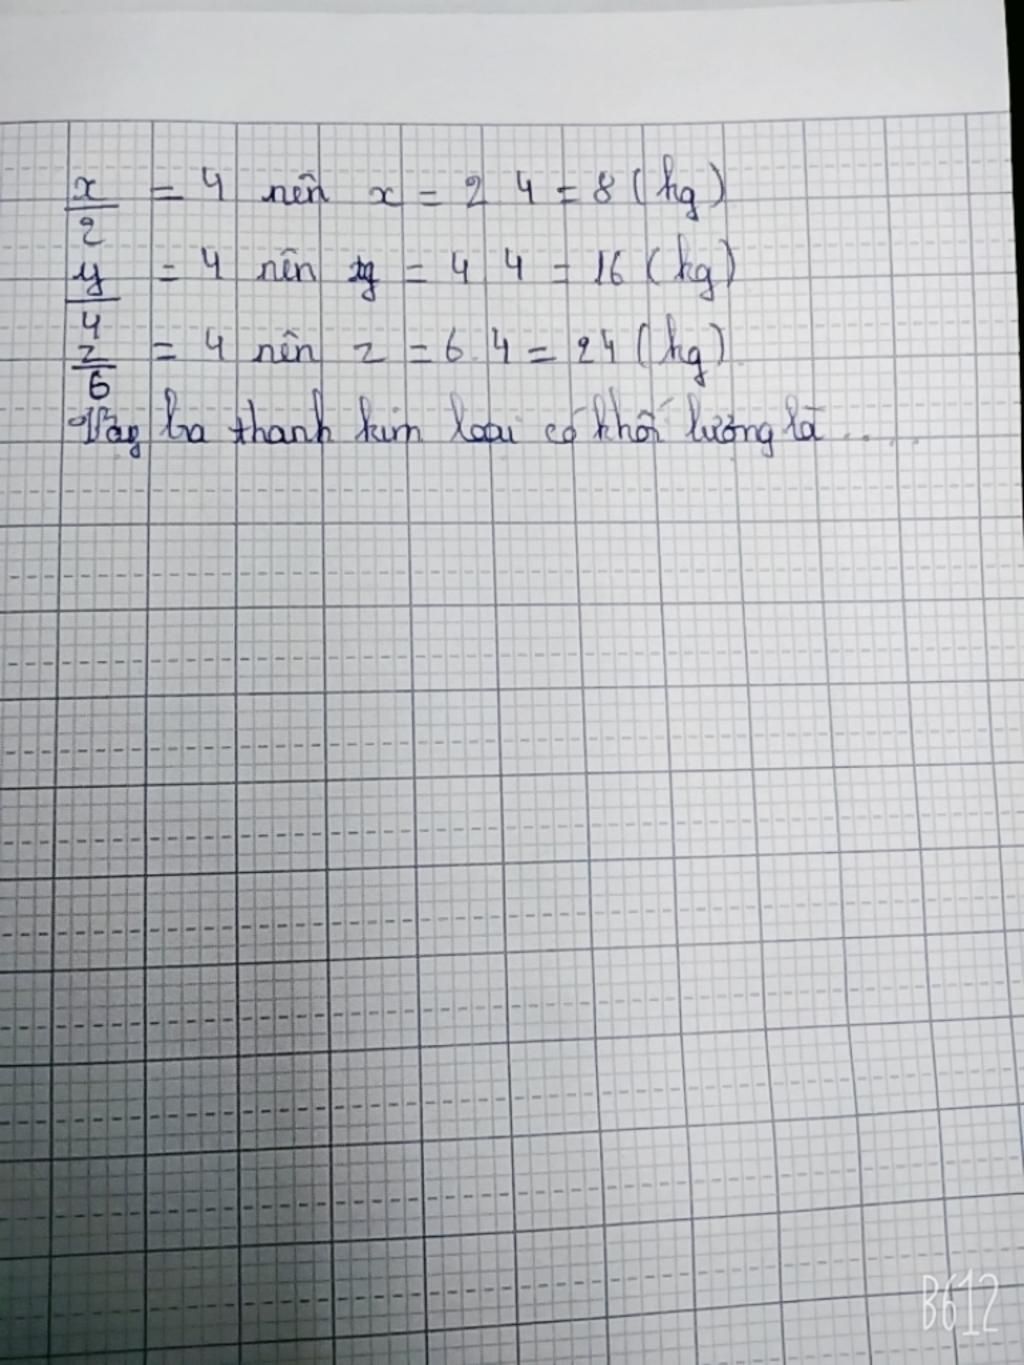 x/2 = 4 nên x = 2 4 = 8 (kg)
y/4 = 4 nên y = 4 4 = 16 (kg)
z/6 = 4 nên z = 6.4 = 24 (kg)
Vậy ba thanh kim loại có khối lượng là .....
B612